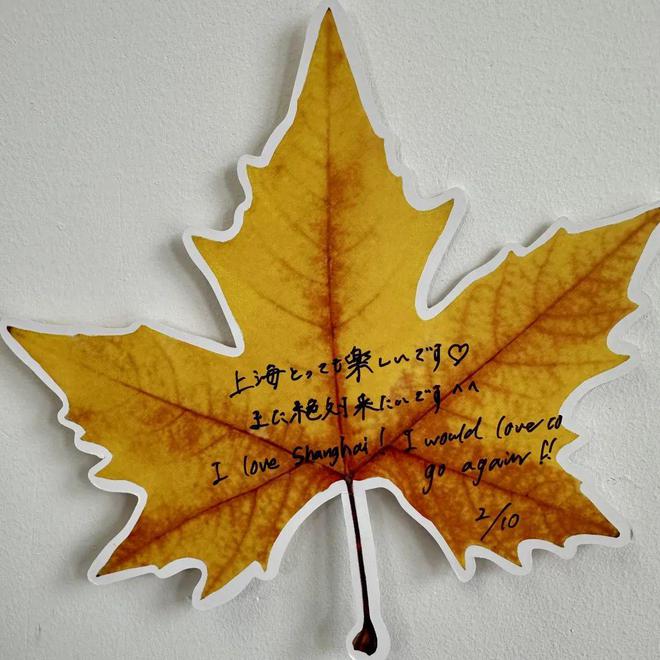 上海とっても楽しいです♡
また絶対来たいです^^
I love Shanghai! I would love to
go again!!
2/10